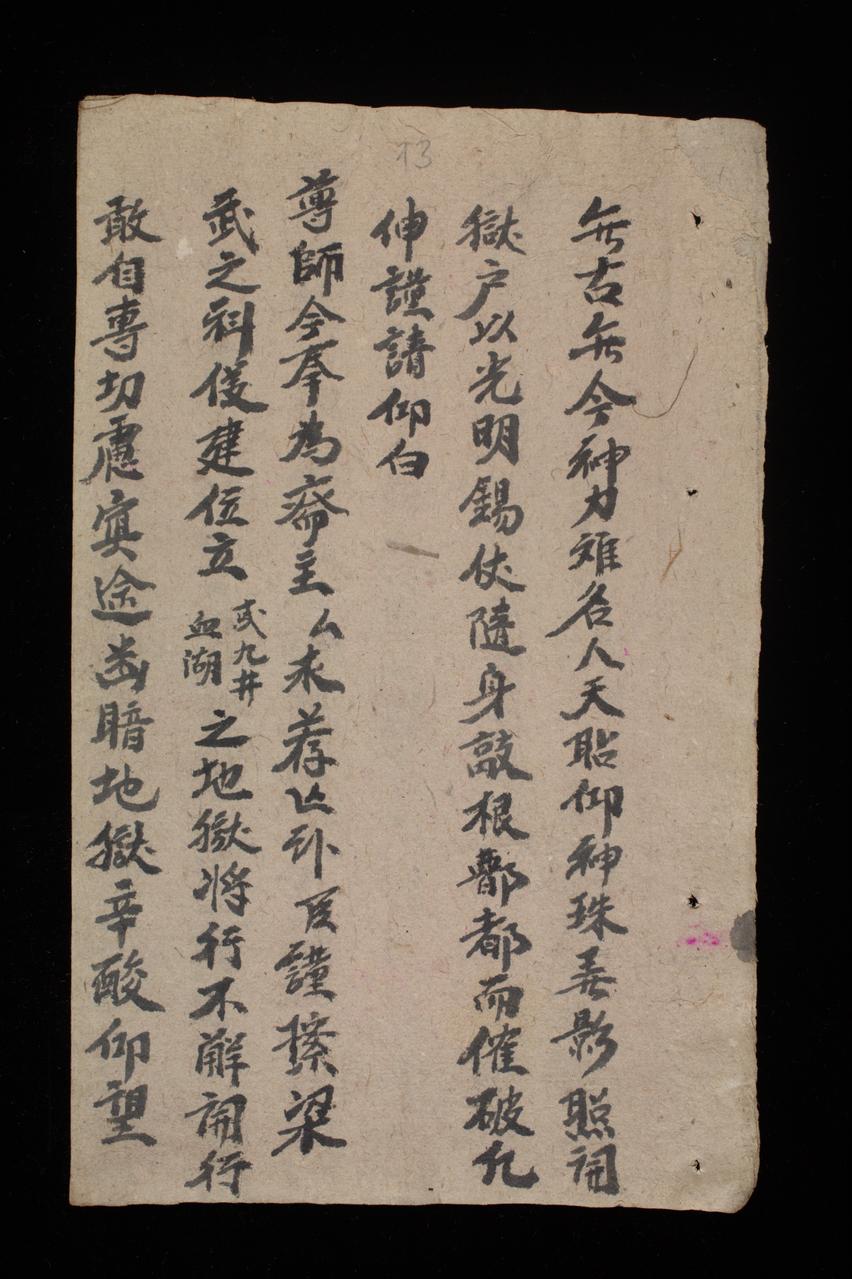 无古无今神力难名人天眙仰神珠無影照闬
獄户以光明錫仗隨身敲根酆都而催破凢
伸謹請仰白
尊師今奉為齋主厶求荐亡卟 謹擄梁
武之科儀建位立 或九井 血湖 之地獄将行不觧闬行
敢自專切慮寞途幽暗地獄辛酸仰望
13